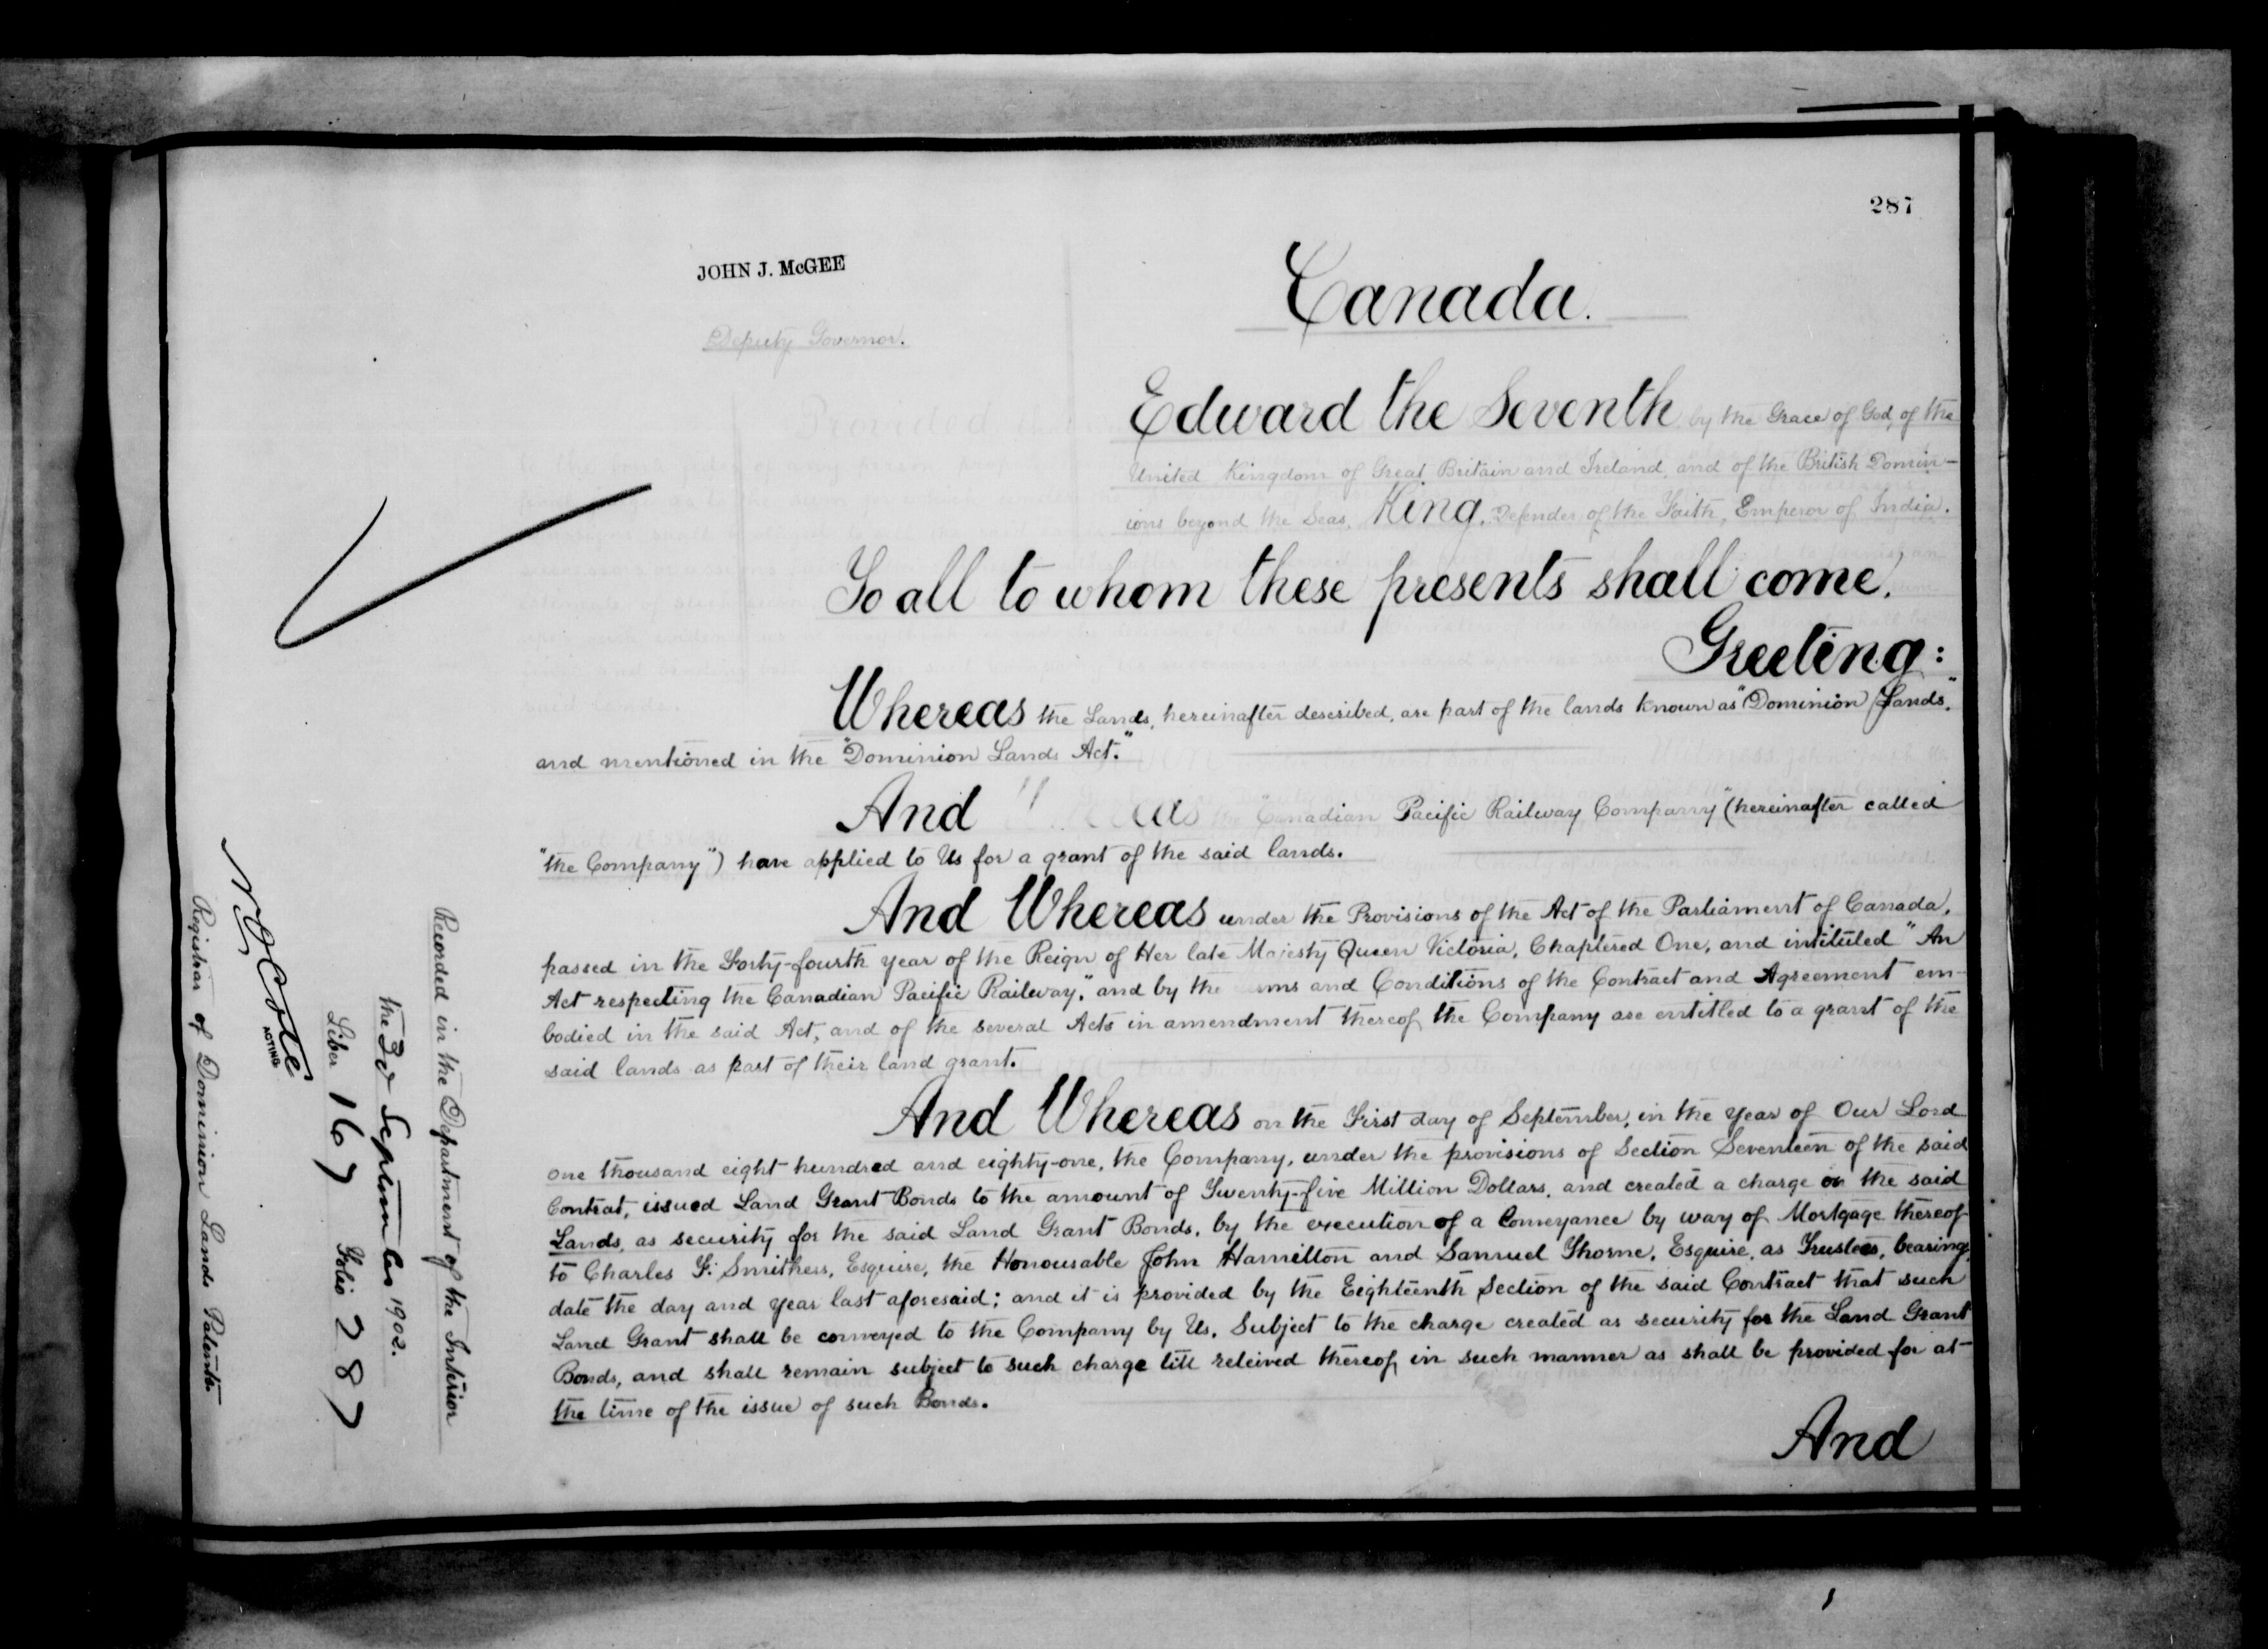 287
JOHN J. McGEE
Deputy Governor.
Canada.
Edward the Seventh by the Grace of God, of the
United Kingdom of Great Britain and Ireland, and of the British Domin-
ions beyond the Seas, King, Defender of the Faith, Emperor of India.
To all to whom these presents shall come,
Greeting:
Whereas the Lands, hereinafter described, are part of the lands known as "Dominion Lands,"
and mentioned in the "Dominion Lands Act."
And the "Canadian Pacific Railway Company" (hereinafter called
"the Company") have applied to Us for a grant of the said lands.
And Whereas under the Provisions of the Act of the Parliament of Canada,
passed in the Forty-fourth year of the Reign of Her late Majesty Queen Victoria, Chaptered One, and intituled "An
Act respecting the Canadian Pacific Railway," and by the and Conditions of the Contract and Agreement em-
bodied in the said Act, and of the several Acts in amendment thereof, the Company are entitled to a grant of the
said lands as part of their land grant.
And Whereas on the First day of September, in the year of Our Lord
one thousand eight hundred and eighty-one, the Company, under the provisions of Section Seventeen of the said
Contrat, issued Land Grant Bonds to the amount of Twenty-five Million Dollars, and created a charge on the said
Lands, as security for the said Land Grant Bonds, by the execution of a Conveyance by way of Mortgage thereof
to Charles F. Smithers, Esquire, the Honourable John Hamilton and Samuel Thorne, Esquire, as Trustees, bearing
date the day and year last aforesaid; and it is provided by the Eighteenth Section of the said Contract that such
Land Grant shall be conveyed to the Company by Us, Subject to the charge created as security for the Land Grant
Bonds, and shall remain subject to such charge till releived thereof, in such manner as shall be provided for at
the time of the issue of such Bonds.
And
Recorded in the Department of the Interior
the 3d September 1902.
Liber 167 Folio 287
N O Coté
ACTING
Registrar of Dominion Lands Patents.